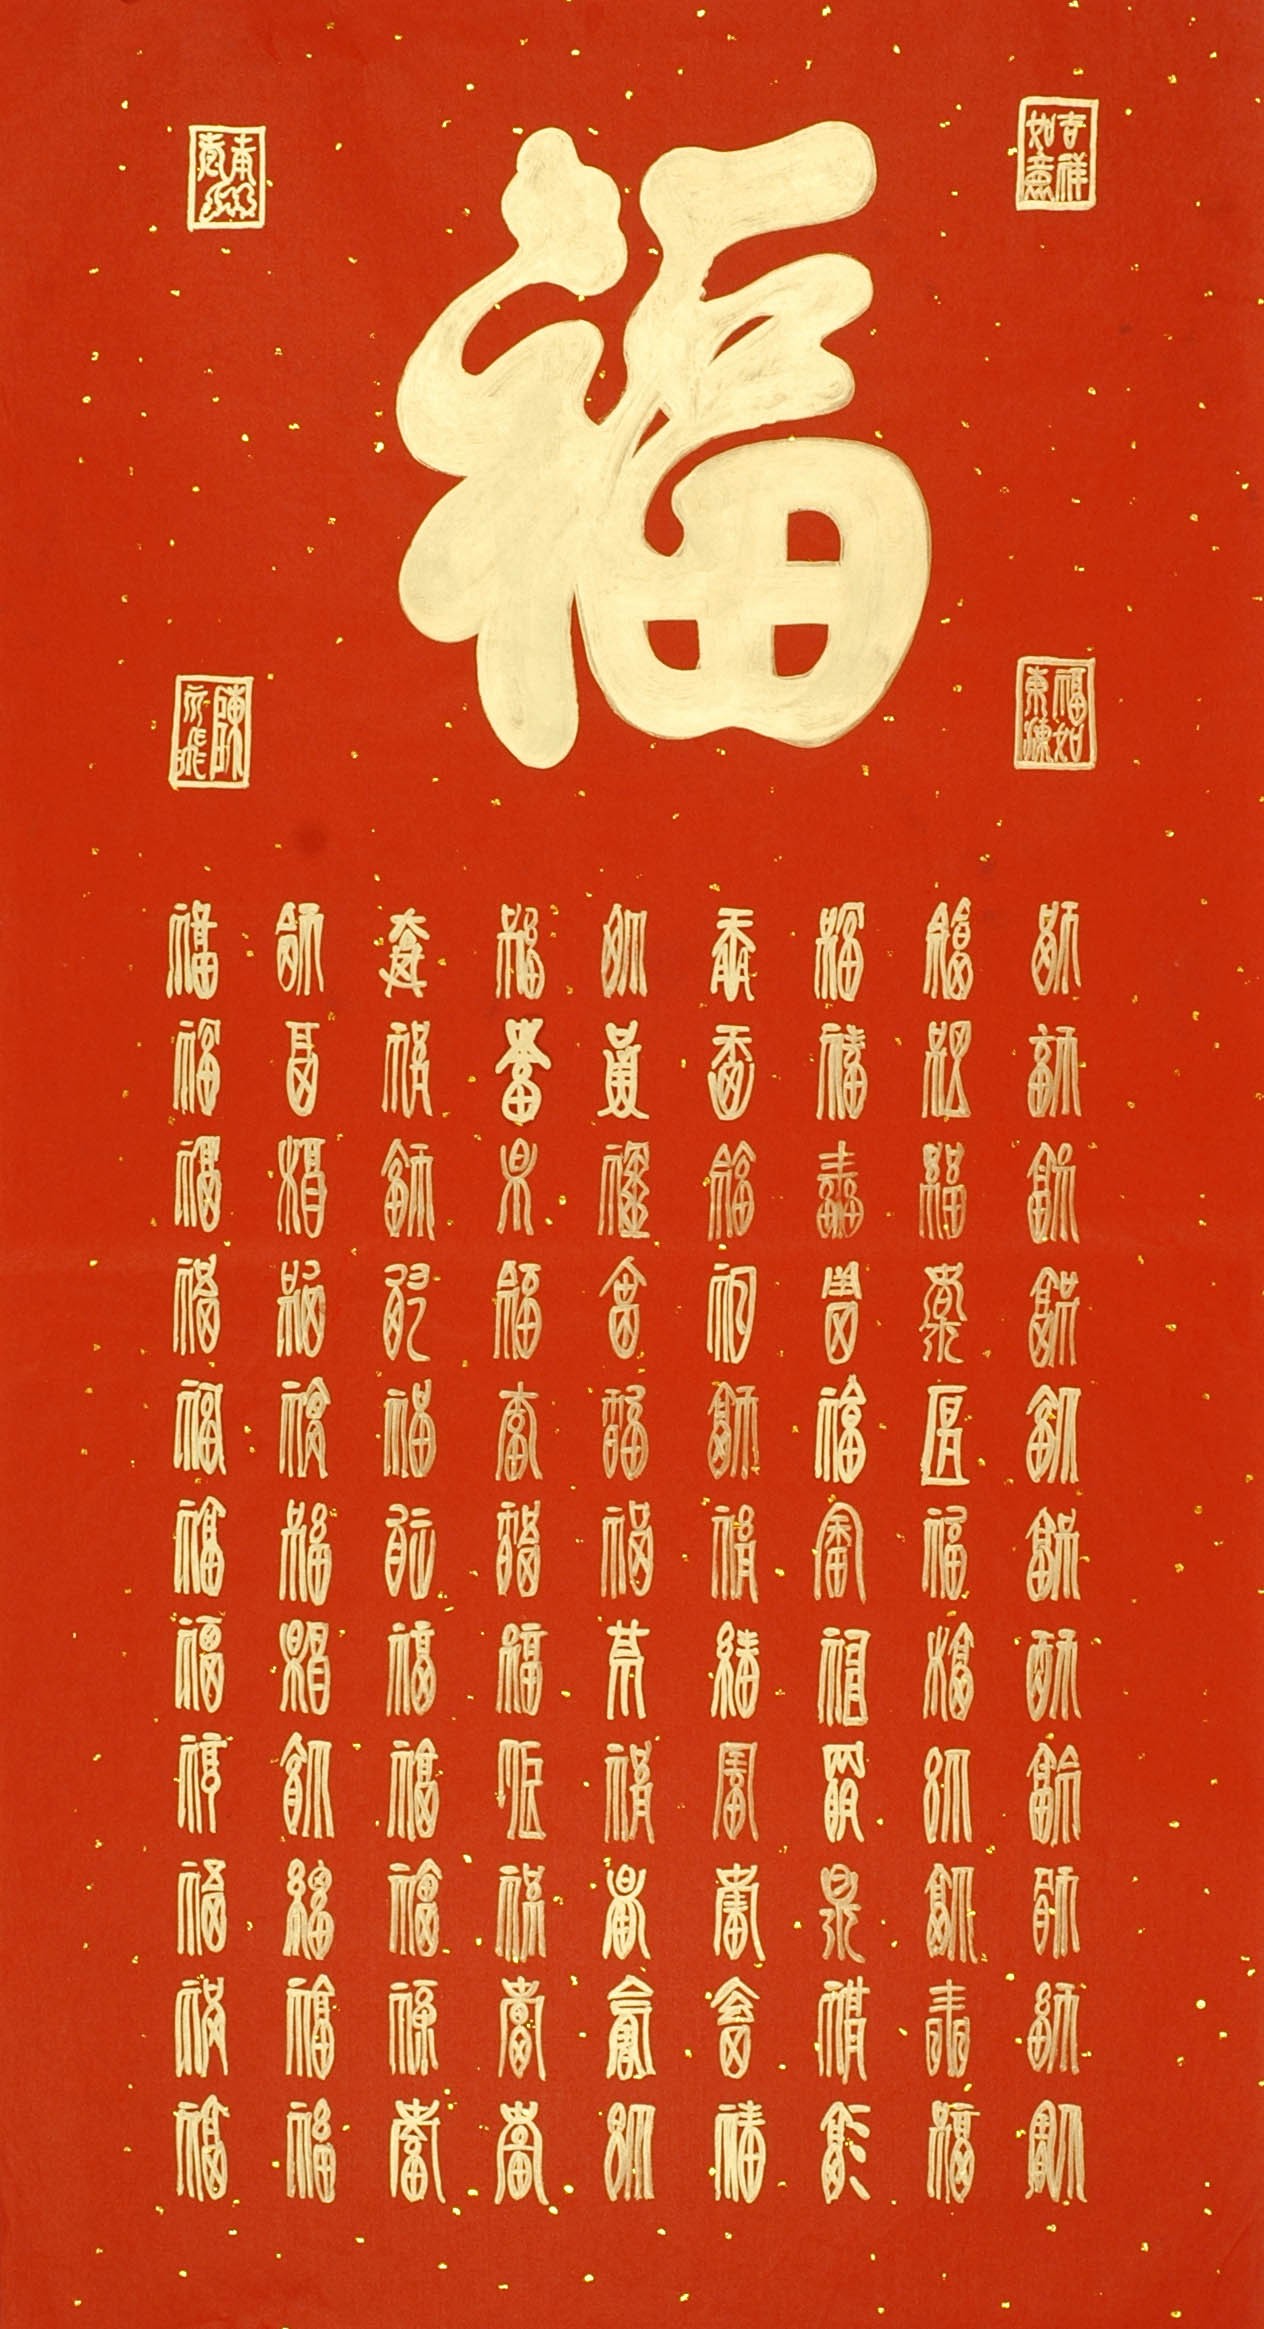 福
吉祥
如意
福如
東海
陳
福福福福福福福福福福福
福福福福福福福福福福福
福福福福福福福福福福福
福福福福福福福福福福福
福福福福福福福福福福福
福福福福福福福福福福福
福福福福福福福福福福福
福福福福福福福福福福福
福福福福福福福福福福福